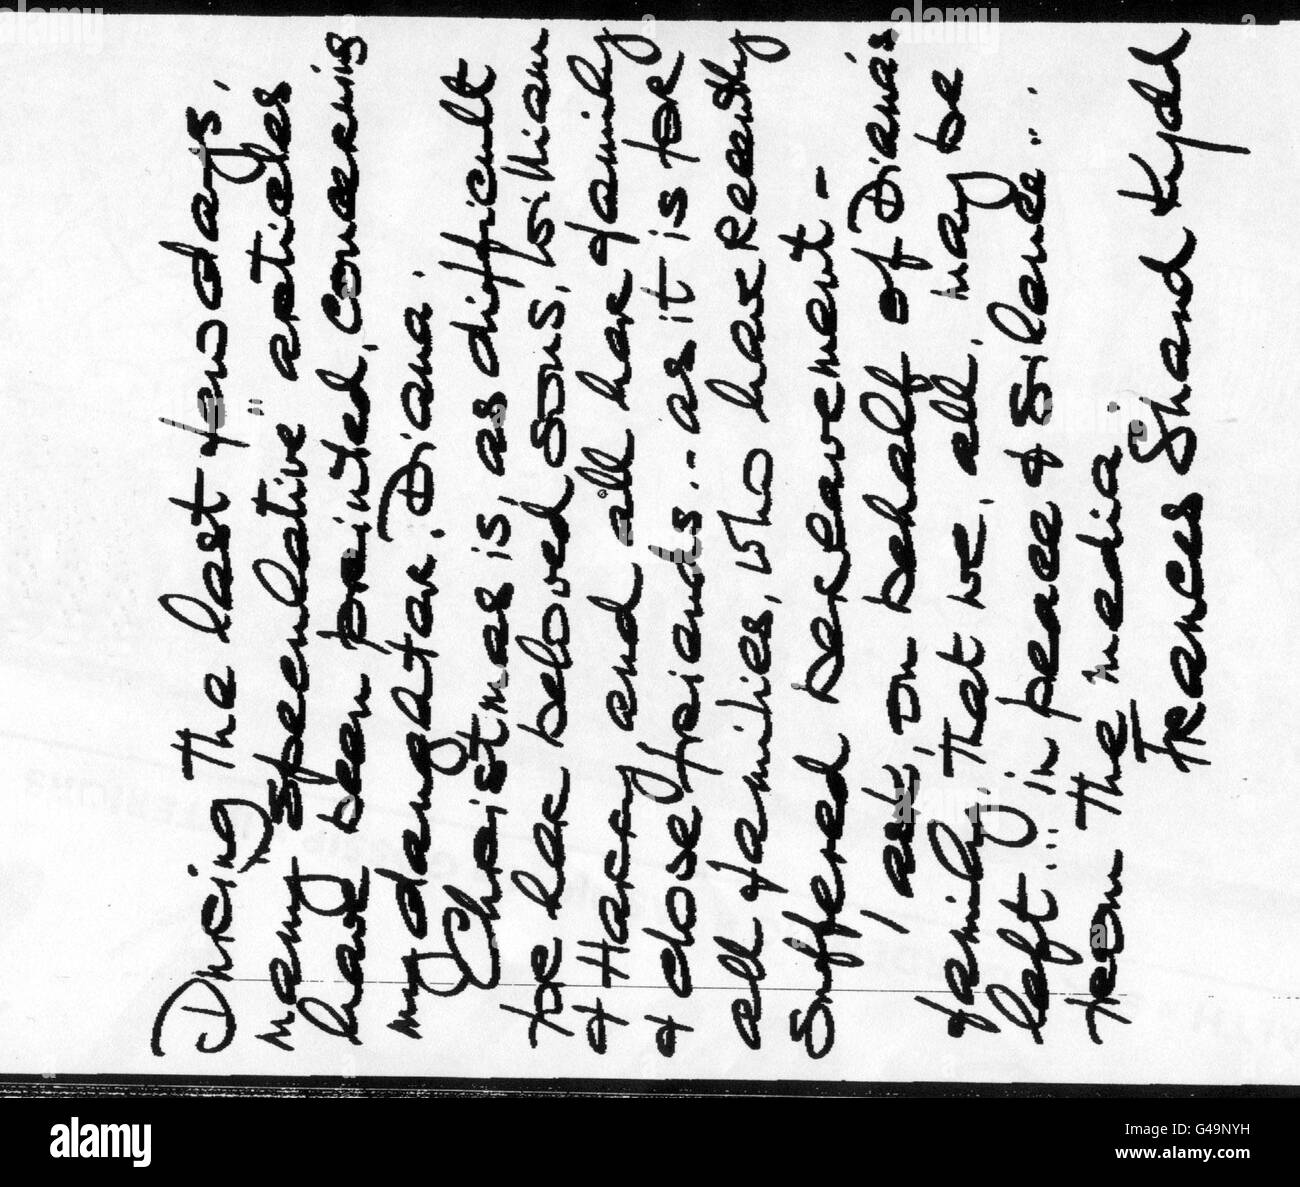 During the last few days,
many "speculative" articles
have been printed, concerning
my daughter, Diana.
Christmas is, as difficult
for her beloved sons, William
& Harry and all her family
& close friends.. as it is for
all families, who have recently
suffered bereavement -
I ask, on behalf of Diana's
family, that we, all, may be
left ... in peace & silence ...
from the media.
Frances Shand Kydd
alamy
Image ID: G49NYH
www.alamy.com